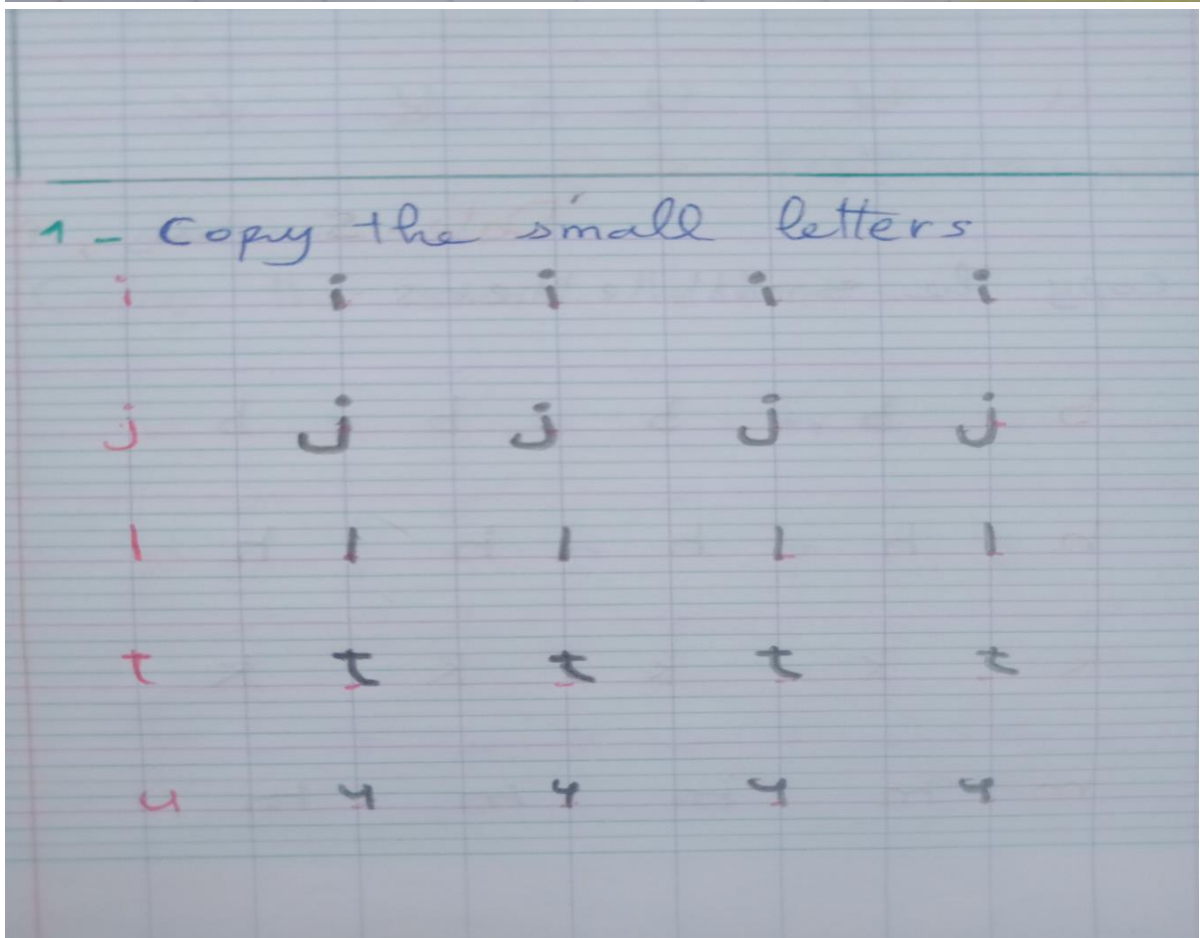 1 - Copy the small letters
i i i i i
j j j j j
l l l l l
t t t t t
u u u u u